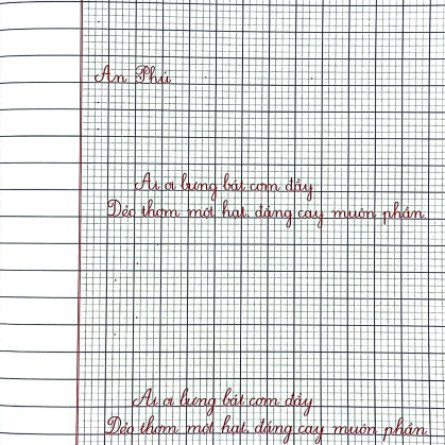 An Phú
Ai ơi bưng bát cơm đầy
Dẻo thơm một hạt, đắng cay muôn phần.
Ai ơi bưng bát cơm đầy
Dẻo thơm một hạt, đắng cay muôn phần.